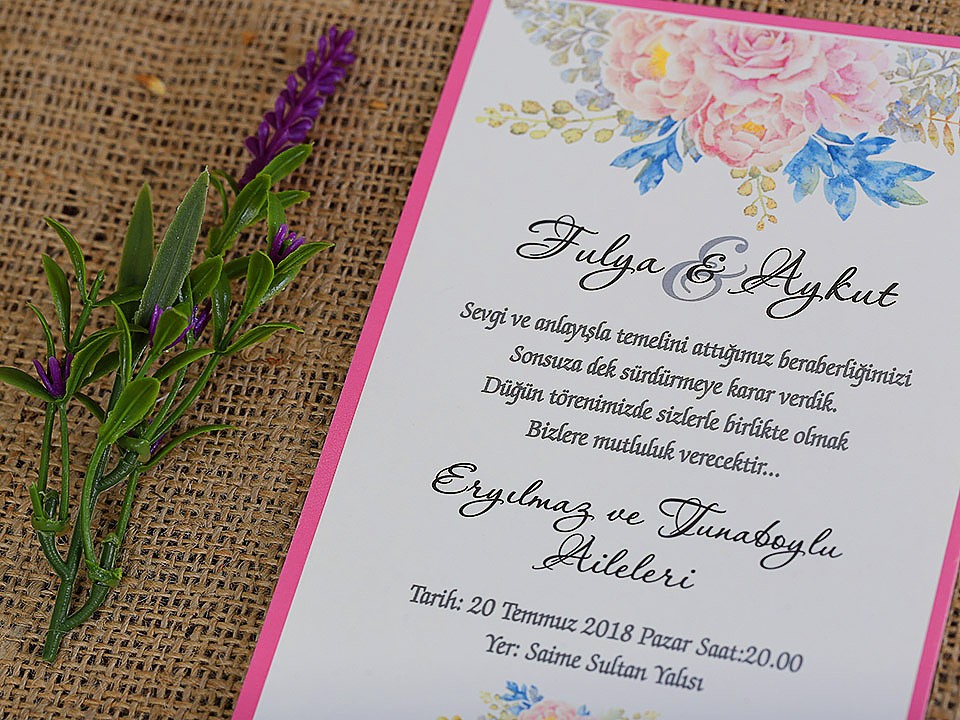 Fulya & Aykut
Sevgi ve anlayışla temelini attığımız beraberliğimizi
Sonsuza dek sürdürmeye karar verdik.
Düğün törenimizde sizlerle birlikte olmak
Bizlere mutluluk verecektir...
Eryılmaz ve Tunaboylu
Aileleri
Tarih: 20 Temmuz 2018 Pazar Saat:20.00
Yer: Saime Sultan Yalısı